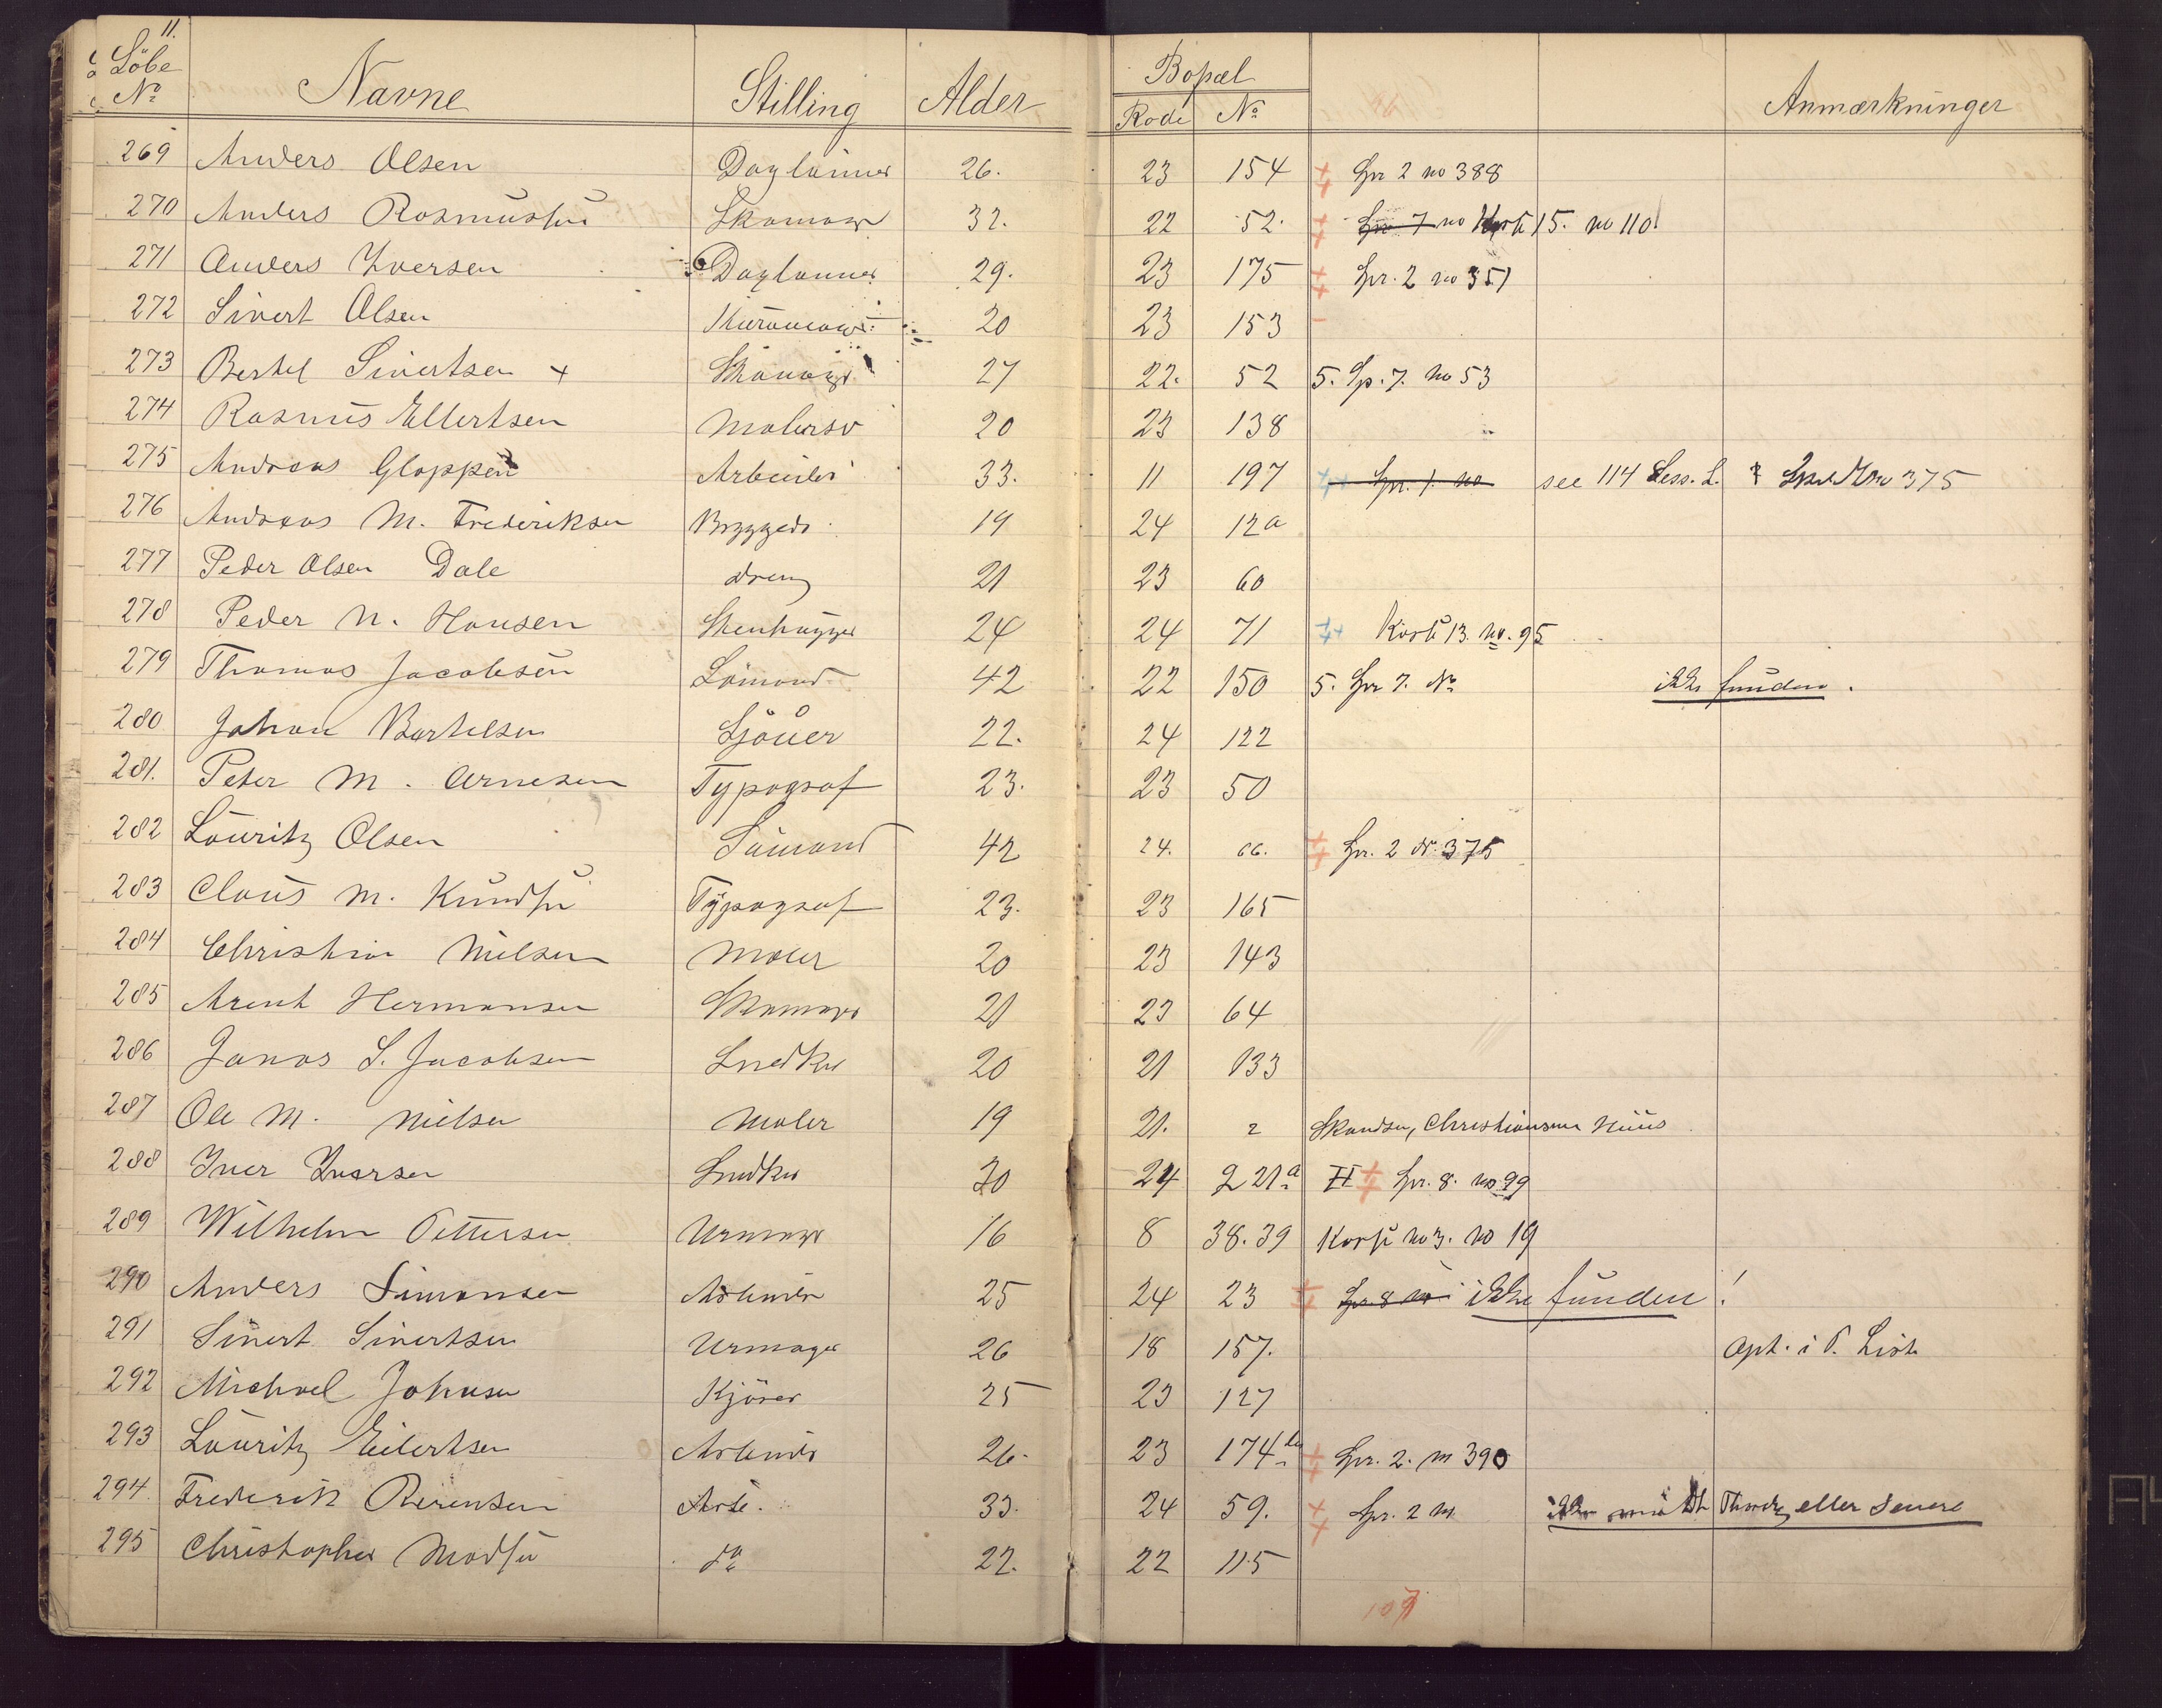 11.
Löbe Nº Navne Stilling Alder Bopæl Rode Nº Anmærkninger
269 Anders Olsen Daglönner 26. 23 154 Spr 2 no 388
270 Anders Rasmussen Skomager 32. 22 52. Spr 7 no 15. no 110
271 Anders Iversen Daglönner 29. 23 175 Spr. 2 no 351
272 Sivert Olsen 20 23 153
273 Bertel Sivertsen + Skomager 27 22. 52 5. Sp. 7. No 53
274 Rasmus Ellertsen Malersv 20 23 138
275 Andreas Gloppen Arbeider 33. 11 197 Spr. 7. no see 114 Sess. L. 375
276 Andreas M. Frederiksen Bryggeri 19 24 12a
277 Peder Olsen Dale dreng 21 23 60
278 Peder N. Hansen Stenhugger 24 24 71 Korst 13. No. 95
279 Thomas Jacobsen Sömand 42 22 150 5. Spr 7. Nº ikke funden.
280 Johan Bertelsen Sjöuer 22. 24 122
281. Peter M. Arnesen Typograf 23. 23 50
282 Lauritz Olsen Sömand 42 24. 66. Spr. 2 Nr. 375
283 Claus M. Knudsen Typograf 23. 23 165
284 Christian Nielsen Maler 20 23 143
285 Arent Hermansen Skomager 21 23 64
286 Jonas S. Jacobsen Snedker 20 21 133
287 Ole M. Nielsen Maler 19 21. 2 Skandsen, Christiansens Huus
288 Iver Iversen Snedker 30 24 221a II Spr. 8. no 99
289 Wilhelm Pettersen Urmager 16 8 38.39 Korsk no 3. No 19
290 Anders Simonsen Arbeider 25 24 23 Spr. 8 no ikke funden!
291 Sivert Sivertsen Urmager 26 18 157. Opt. i P. Liste
292 Michael Johnsen Kjörer 25 23 127
293 Lauritz Eilertsen Arbeider 26. 23 174 Spr. 2. no 390
294. Frederik Berentsen Arbe. 33. 24 59. Spr. 2 no ikke mödt eller senere
295 Christopher Madsen do 22. 22 115
107